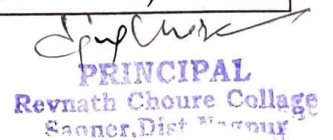 PRINCIPAL
Revnath Choure Collage
Saoner, Dist